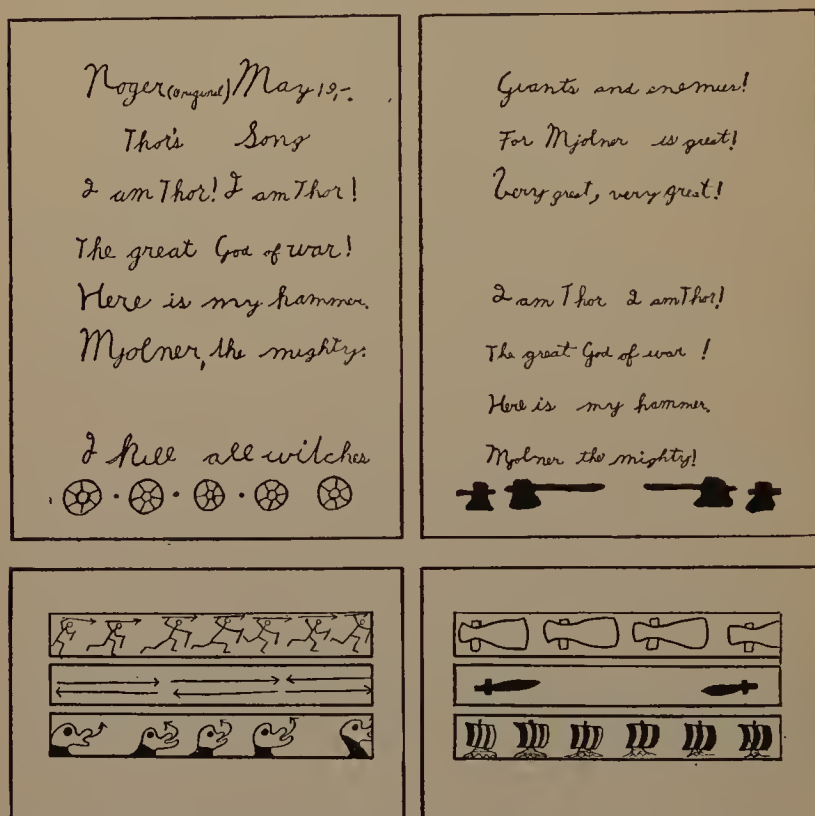 Roger (original) May 19,-.
Thor's Song
I am Thor! I am Thor!
The great God of war!
Here is my hammer.
Mjolner, the mighty.
I kill all witches
Giants and enemies!
For Mjolner is great!
Very great, very great!
I am Thor I am Thor!
The great God of war !
Here is my hammer.
Mjolner the mighty!